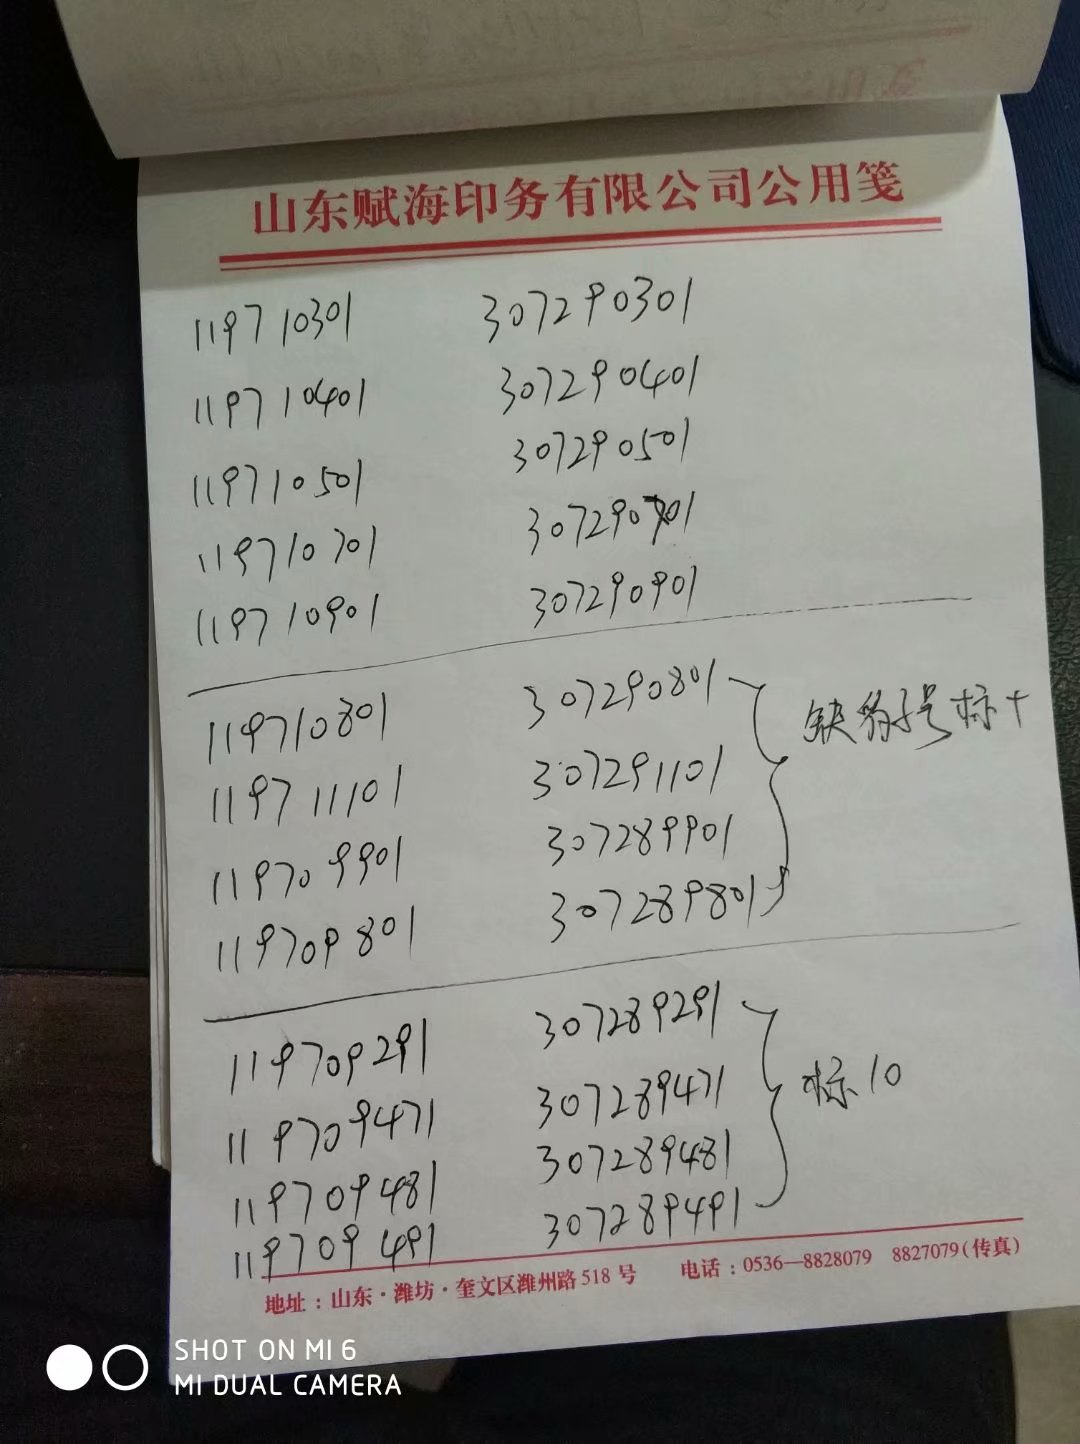 山东赋海印务有限公司公用笺
119710301 307290301
119710401 307290401
119710501 307290501
119710701 307290701
119710901 307290901
119710801 307290801
缺豹子号标十
119711101 307291101
119709901 307289901
119709801 307289801
119709291 307289291
标10
119709471 307289471
119709481 307289481
119709491 307289491
地址：山东·潍坊·奎文区潍州路518号 电话：0536—8828079 8827079(传真)
SHOT ON MI 6
MI DUAL CAMERA